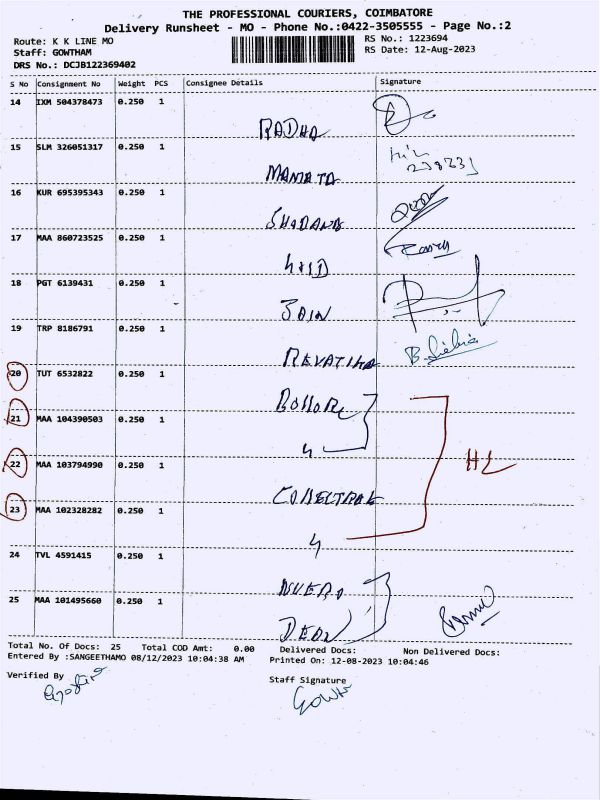 THE PROFESSIONAL COURIERS, COIMBATORE
Delivery Runsheet - MO - Phone No.:0422-3505555 - Page No.:2
Route: K K LINE MO RS No.: 1223694
Staff: GOWTHAM RS Date: 12-Aug-2023
DRS No.: DCJB122369402
S No Consignment No Weight PCS Consignee Details Signature
14 IXM 504378473 0.250 1
RADHA
15 SLM 326051317 0.250 1
MAMATA
16 KUR 695395343 0.250 1
17 MAA 860723525 0.250 1
18 PGT 6139431 0.250 1
JAIN
19 TRP 8186791 0.250 1
REVATHA
20 TUT 6532822 0.250 1
21 MAA 104390503 0.250 1
22 MAA 103794990 0.250 1
HL
23 MAA 102328282 0.250 1
24 TVL 4591415 0.250 1
25 MAA 101495660 0.250 1
Total No. Of Docs: 25 Total COD Amt: 0.00 Delivered Docs: Non Delivered Docs:
Entered By :SANGEETHAMO 08/12/2023 10:04:38 AM Printed On: 12-08-2023 10:04:46
Verified By Staff Signature